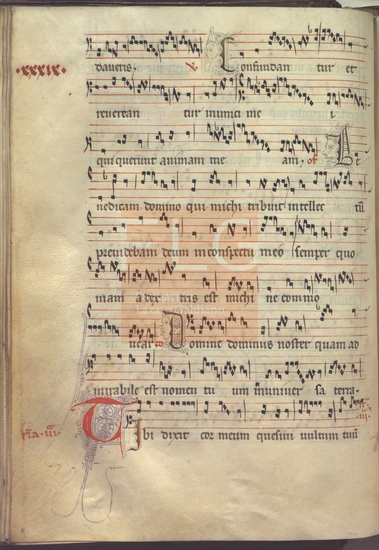 daueris. V. Confundan tur et
·xxxix·
reuerean tur inimici me i
qui querunt animam me am, of Be
nedicam domino qui michi tribuit intellec tū
prouidebam deum in conspectu meo semper quo
niam a dex tris est michi ne commo
uear co Domine dominus noster quam ad
mirabile est nomen tu um in uniuer sa terra.
fīa. iii. Tibi dixit cor meum quesiui uultum tuū